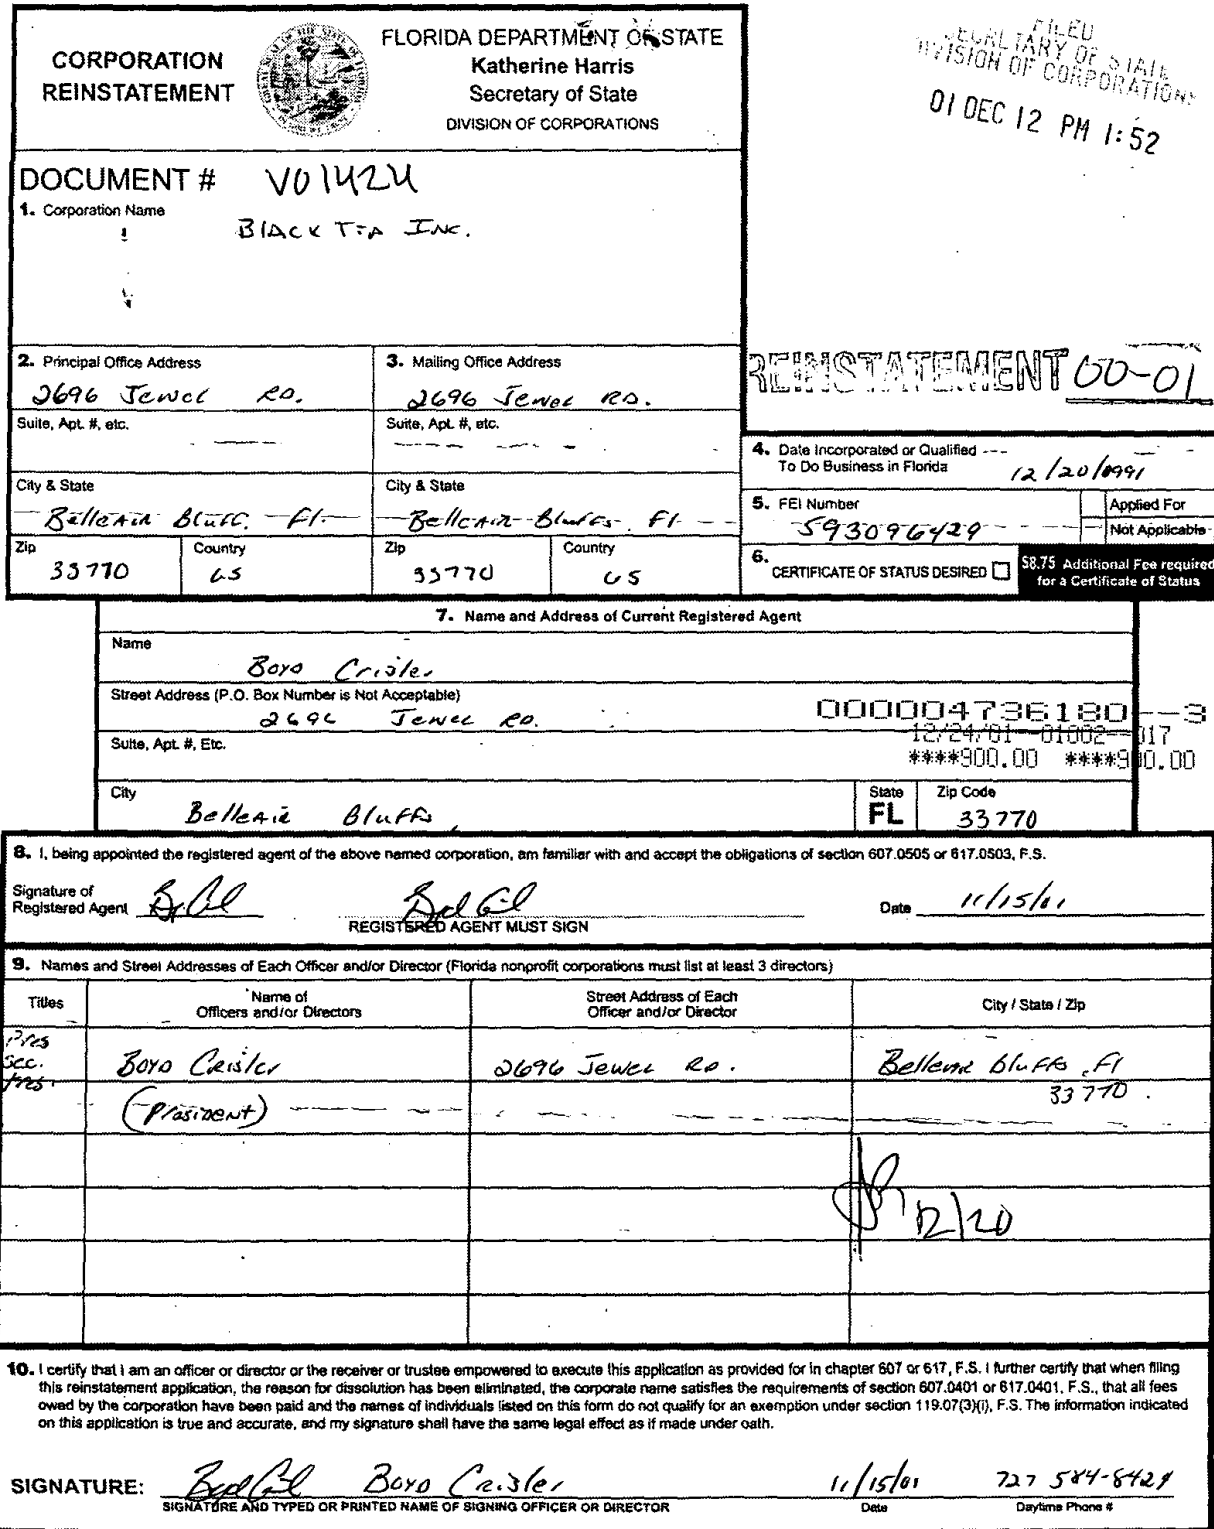 CORPORATION
REINSTATEMENT
FLORIDA DEPARTMENT OF STATE
Katherine Harris
Secretary of State
DIVISION OF CORPORATIONS
FILED
SECRETARY OF STATE
DIVISION OF CORPORATIONS
01 DEC 12 PM 1:52
DOCUMENT # V01424
1. Corporation Name
BLACK TIA INC.
REINSTATEMENT 00-01
2. Principal Office Address
2696 Jewel RD.
Suite, Apt. #, etc.
City & State
BelleAir Bluff. Fl.
Zip
33770
Country
US
3. Mailing Office Address
2696 Jewel RD.
Suite, Apt. #, etc.
City & State
BelleAir Bluffs Fl
Zip
33770
Country
US
4. Date Incorporated or Qualified
To Do Business in Florida
12/20/1991
5. FEI Number
593096429
Applied For
Not Applicable
6. CERTIFICATE OF STATUS DESIRED
$8.75 Additional Fee required
for a Certificate of Status
7. Name and Address of Current Registered Agent
Name
Boyd Crisler
Street Address (P.O. Box Number is Not Acceptable)
2696 Jewel RD.
000004736180--3
12/24/01--01002--017
****900.00 ****900.00
Suite, Apt. #, Etc.
City
BelleAir Bluffs,
State
FL
Zip Code
33770
8. I, being appointed the registered agent of the above named corporation, am familiar with and accept the obligations of section 607.0505 or 617.0503, F.S.
Signature of
Registered Agent
REGISTERED AGENT MUST SIGN
Date 11/15/01
9. Names and Street Addresses of Each Officer and/or Director (Florida nonprofit corporations must list at least 3 directors)
Titles
Name of
Officers and/or Directors
Street Address of Each
Officer and/or Director
City / State / Zip
Pres
Sec.
Tres.
Boyd Crisler
2696 Jewel RD.
Belleair Bluffs, Fl
33770.
(President)
12/20
10. I certify that I am an officer or director or the receiver or trustee empowered to execute this application as provided for in chapter 607 or 617, F.S. I further certify that when filing
this reinstatement application, the reason for dissolution has been eliminated, the corporate name satisfies the requirements of section 607.0401 or 617.0401, F.S., that all fees
owed by the corporation have been paid and the names of individuals listed on this form do not qualify for an exemption under section 119.07(3)(i), F.S. The information indicated
on this application is true and accurate, and my signature shall have the same legal effect as if made under oath.
SIGNATURE: Boyd Crisler 11/15/01 727 584-8429
SIGNATURE AND TYPED OR PRINTED NAME OF SIGNING OFFICER OR DIRECTOR
Date
Daytime Phone #